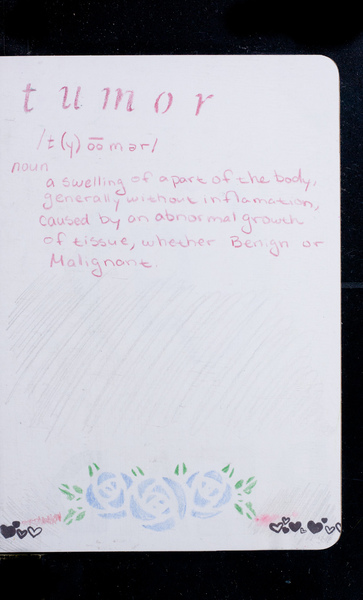 tumor
/t(y)o͞omər/
noun
a swelling of a part of the body,
generally without inflamation,
caused by an abnormal growth
of tissue, whether Benign or
Malignant.